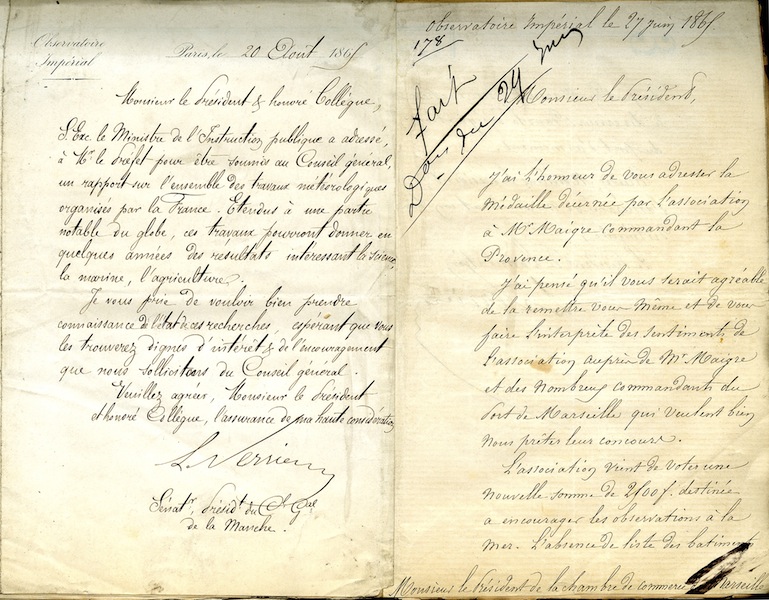 Observatoire
Impérial
Paris, le 20 Août 1865
Monsieur le Président & honoré Collègue,
S. Exc. le Ministre de l'Instruction publique a adressé,
à Mr. le Préfet pour être soumis au Conseil général,
un rapport sur l'ensemble des travaux météorologiques
organisés par la France. Etendus à une partie
notable du globe, ces travaux pourront donner en
quelques années des resultats intéressant la science,
la marine, l'agriculture.
Je vous prie de vouloir bien prendre
connaissance de l'état de ces recherches, espérant que vous
les trouverez dignes d'intérêt & de l'encouragement
que nous sollicitons du Conseil général.
Veuillez agréer, Monsieur le Président
et honoré Collègue, l'assurance de ma haute considération
Le Verrier
Sénatr., Présidt. du Cl. Gal
de la Manche.
Observatoire Impérial le 27 juin 1865.
178
fait
Dou du 29 juin
Monsieur le Président,
J'ai l'honneur de vous adresser la
médaille décernée par l'association
à Mr. Maigre commandant la
Provence.
J'ai pensé qu'il vous serait agréable
de la remettre vous même et de vous
faire l'interprète des sentiments de
l'association auprès de Mr. Maigre
et des nombreux commandants du
Port de Marseille qui veulent bien
nous prêter leur concours.
L'association vient de voter une
nouvelle somme de 2500 f. destinée
a encourager les observations à la
mer. L'absence de liste des batiments
Monsieur le Président de la chambre de commerce Marseille